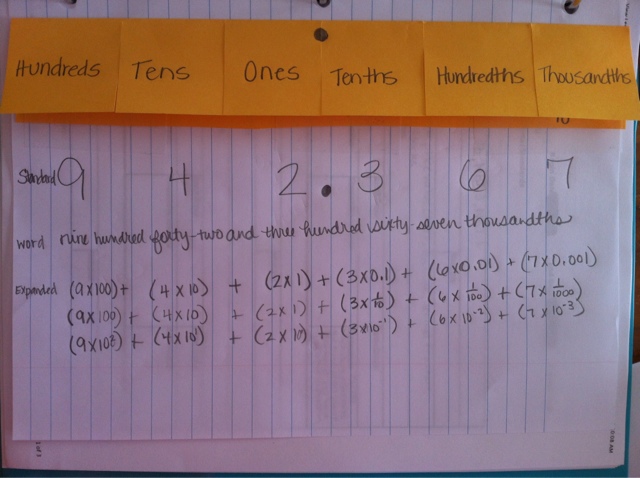 Hundreds Tens Ones Tenths Hundredths Thousandths
Standard 9 4 2 . 3 6 7
word nine hundred forty-two and three hundred sixty-seven thousandths
Expanded (9x100) + (4 x 10) + (2x1) + (3x0.1) + (6x0.01) + (7x0.001)
(9x100) + (4x10) + (2x1) + (3x 1/10) + (6 x 1/100) + (7x 1/1000)
(9x10²) + (4x10¹) + (2 x 10⁰) + (3x10⁻¹) + (6 x 10⁻²) + (7 x 10⁻³)